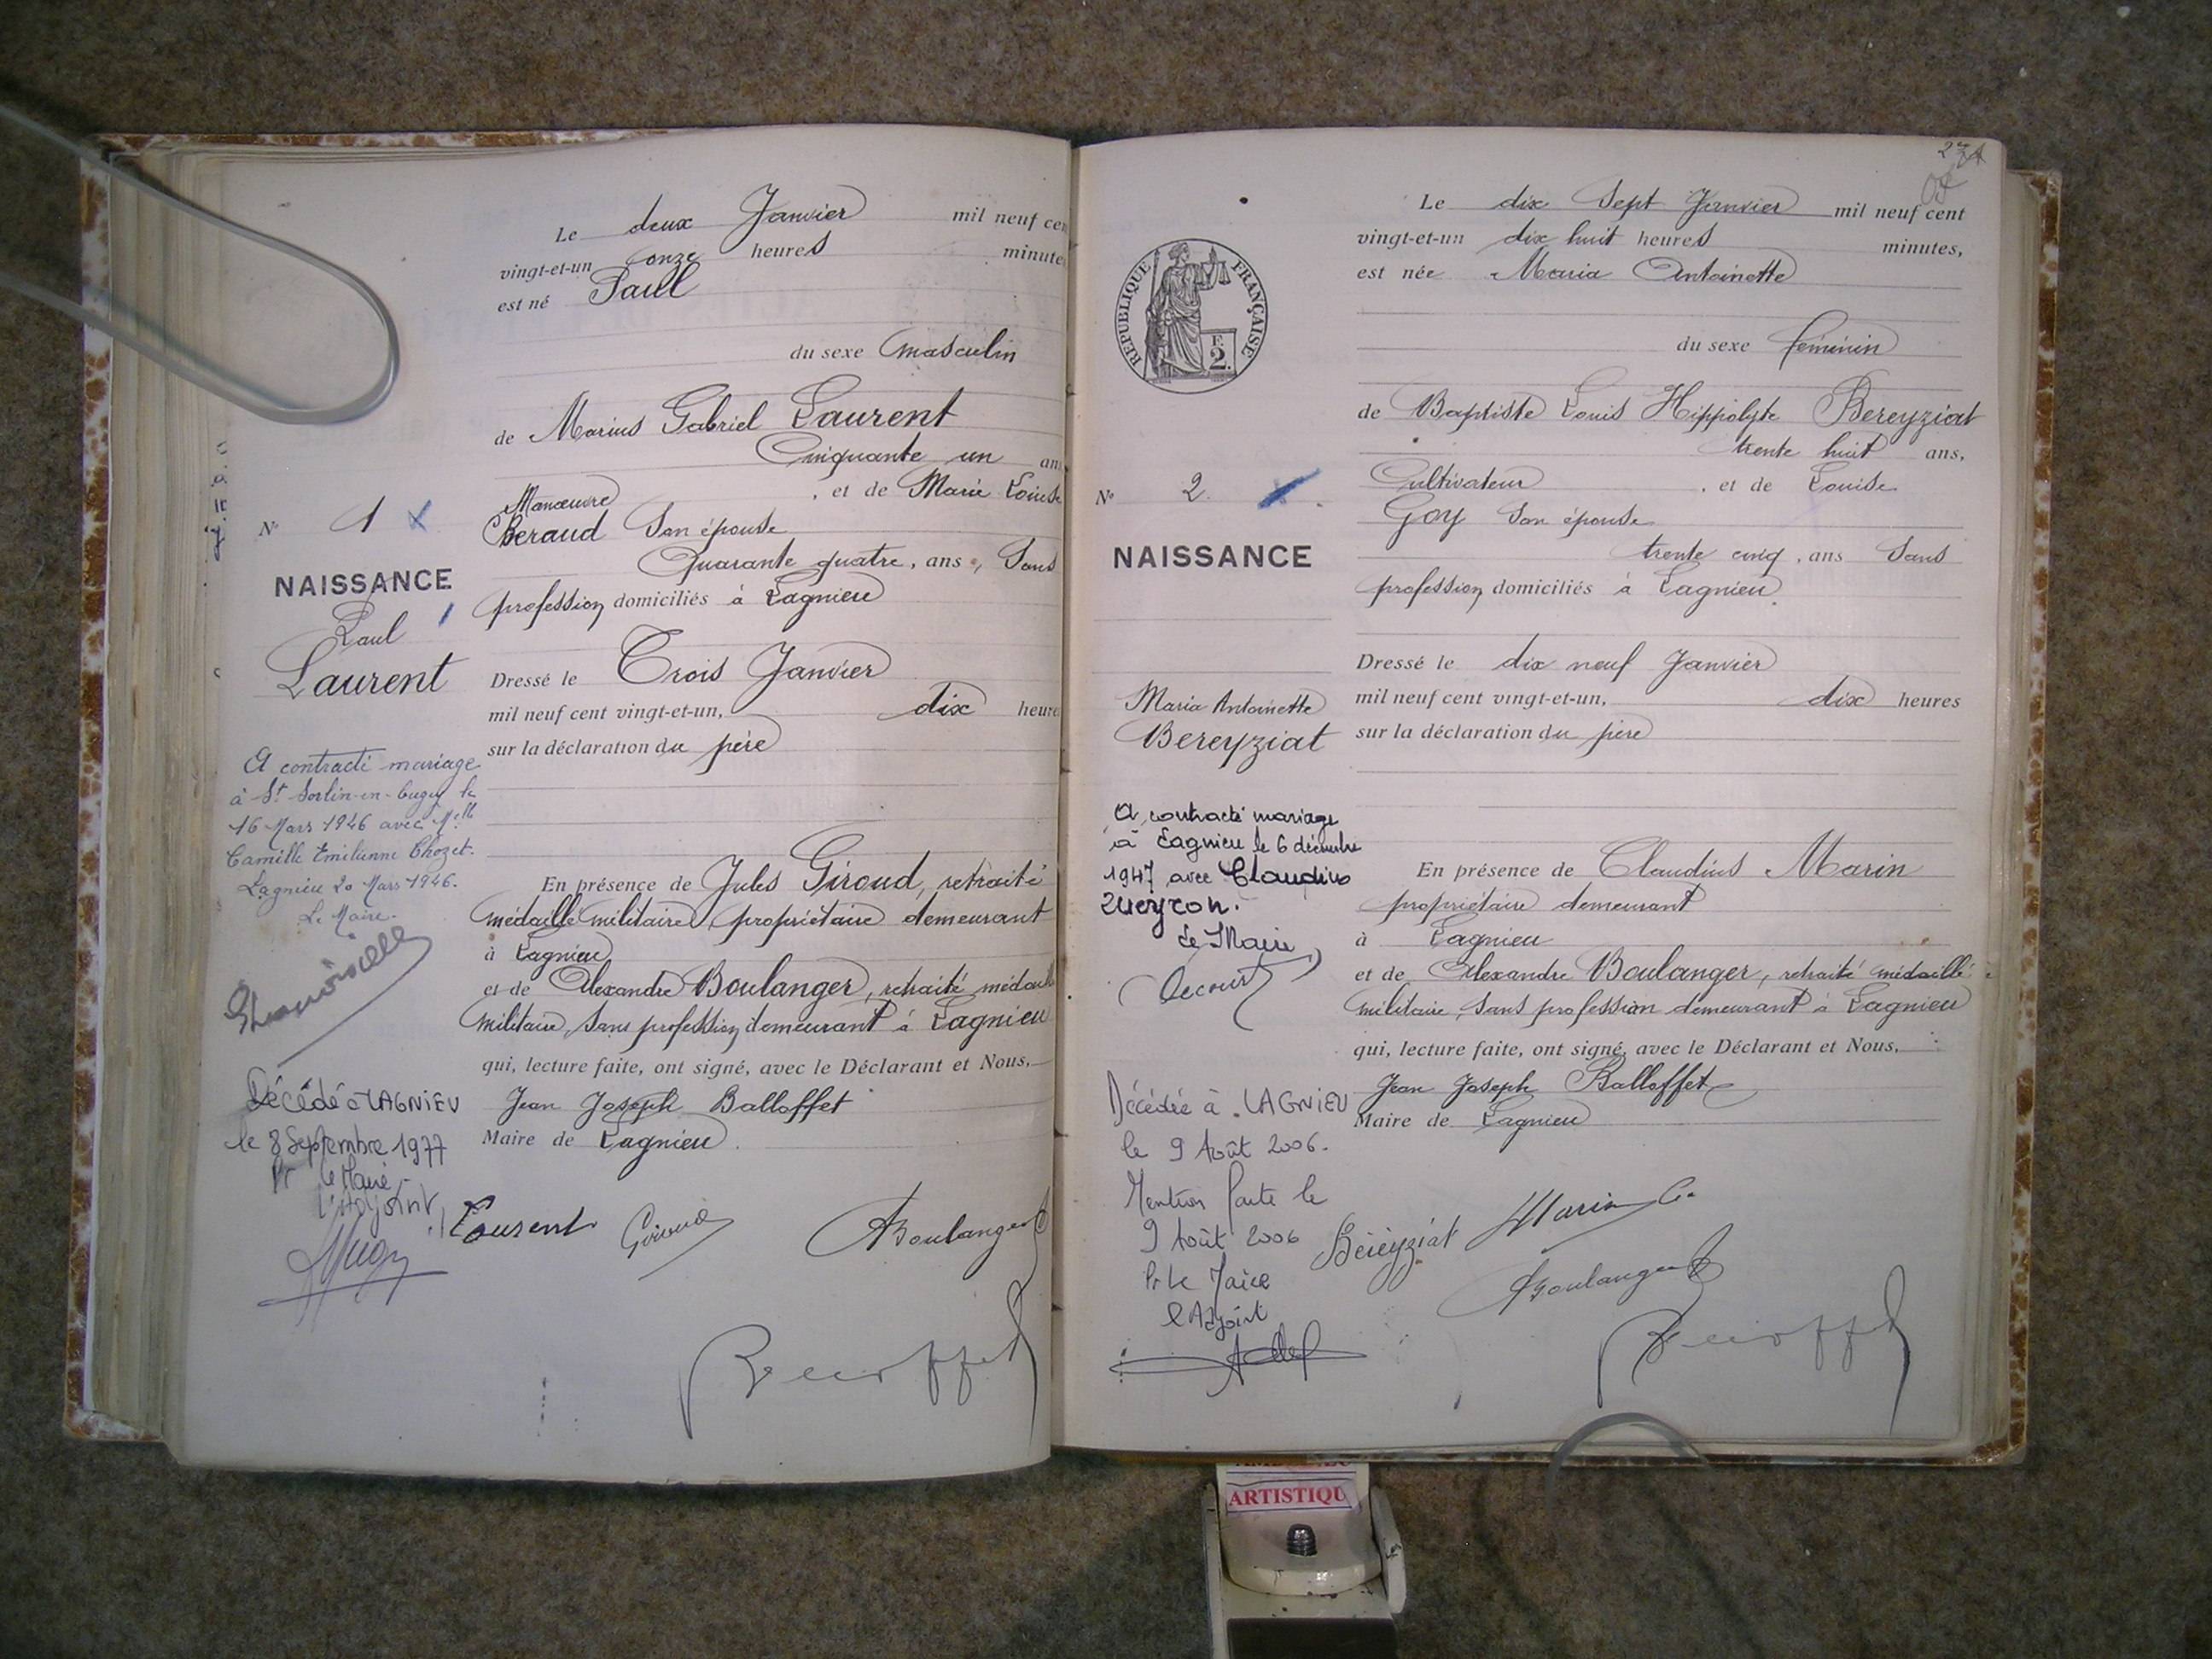 Le deux Janvier mil neuf cen
vingt-et-un onze heures minute
est né Paul
du sexe masculin
de Marius Gabriel Laurent
Cinquante un an
Manœuvre, et de Marie Louise
Beraud Son épouse
Quarante quatre, ans, Sans
profession domiciliés à Lagnieu
Dressé le Trois Janvier
mil neuf cent vingt-et-un, dix heure
sur la déclaration du père
En présence de Jules Giroud, retraité
médaillé militaire, propriétaire demeurant
à Lagnieu
et de Alexandre Boulanger, retraité médaillé
militaire, sans profession demeurant à Lagnieu
qui, lecture faite, ont signé, avec le Déclarant et Nous,
Jean Joseph Balloffet
Maire de Lagnieu
N° 1
NAISSANCE
Paul
Laurent
A contracté mariage
à St Sorlin-en-Bugey le
16 Mars 1946 avec Melle
Camille Emilienne Chozet.
Lagnieu 20 Mars 1946.
Le Maire.
Décédé à LAGNIEU
le 8 Septembre 1977
Pr le Maire,
L'Adjoint,
Laurent Giroud ABoulanger
2
RÉPUBLIQUE FRANÇAISE
E
2.
Le dix Sept Janvier mil neuf cent
vingt-et-un dix huit heures minutes,
est née Maria Antoinette
du sexe féminin
de Baptiste Louis Hippolyte Bereyziat
trente huit ans,
Cultivateur, et de Louise
Goy Son épouse
trente cinq, ans Sans
profession domiciliés à Lagnieu
Dressé le dix neuf Janvier
mil neuf cent vingt-et-un, dix heures
sur la déclaration du père
En présence de Claudius Marin
propriétaire demeurant
à Lagnieu
et de Alexandre Boulanger, retraité médaillé
militaire, sans profession demeurant à Lagnieu
qui, lecture faite, ont signé, avec le Déclarant et Nous,
Jean Joseph Balloffet
Maire de Lagnieu
N° 2
NAISSANCE
Maria Antoinette
Bereyziat
A contracté mariage
à Lagnieu le 6 décembre
1947 avec Claudius
Queyron.
Le Maire,
Décédée à LAGNIEU
le 9 Août 2006.
Mention faite le
9 Août 2006
Pr Le Maire
l'Adjoint
Béréyziat Marin C.
ABoulanger
ARTISTIQU